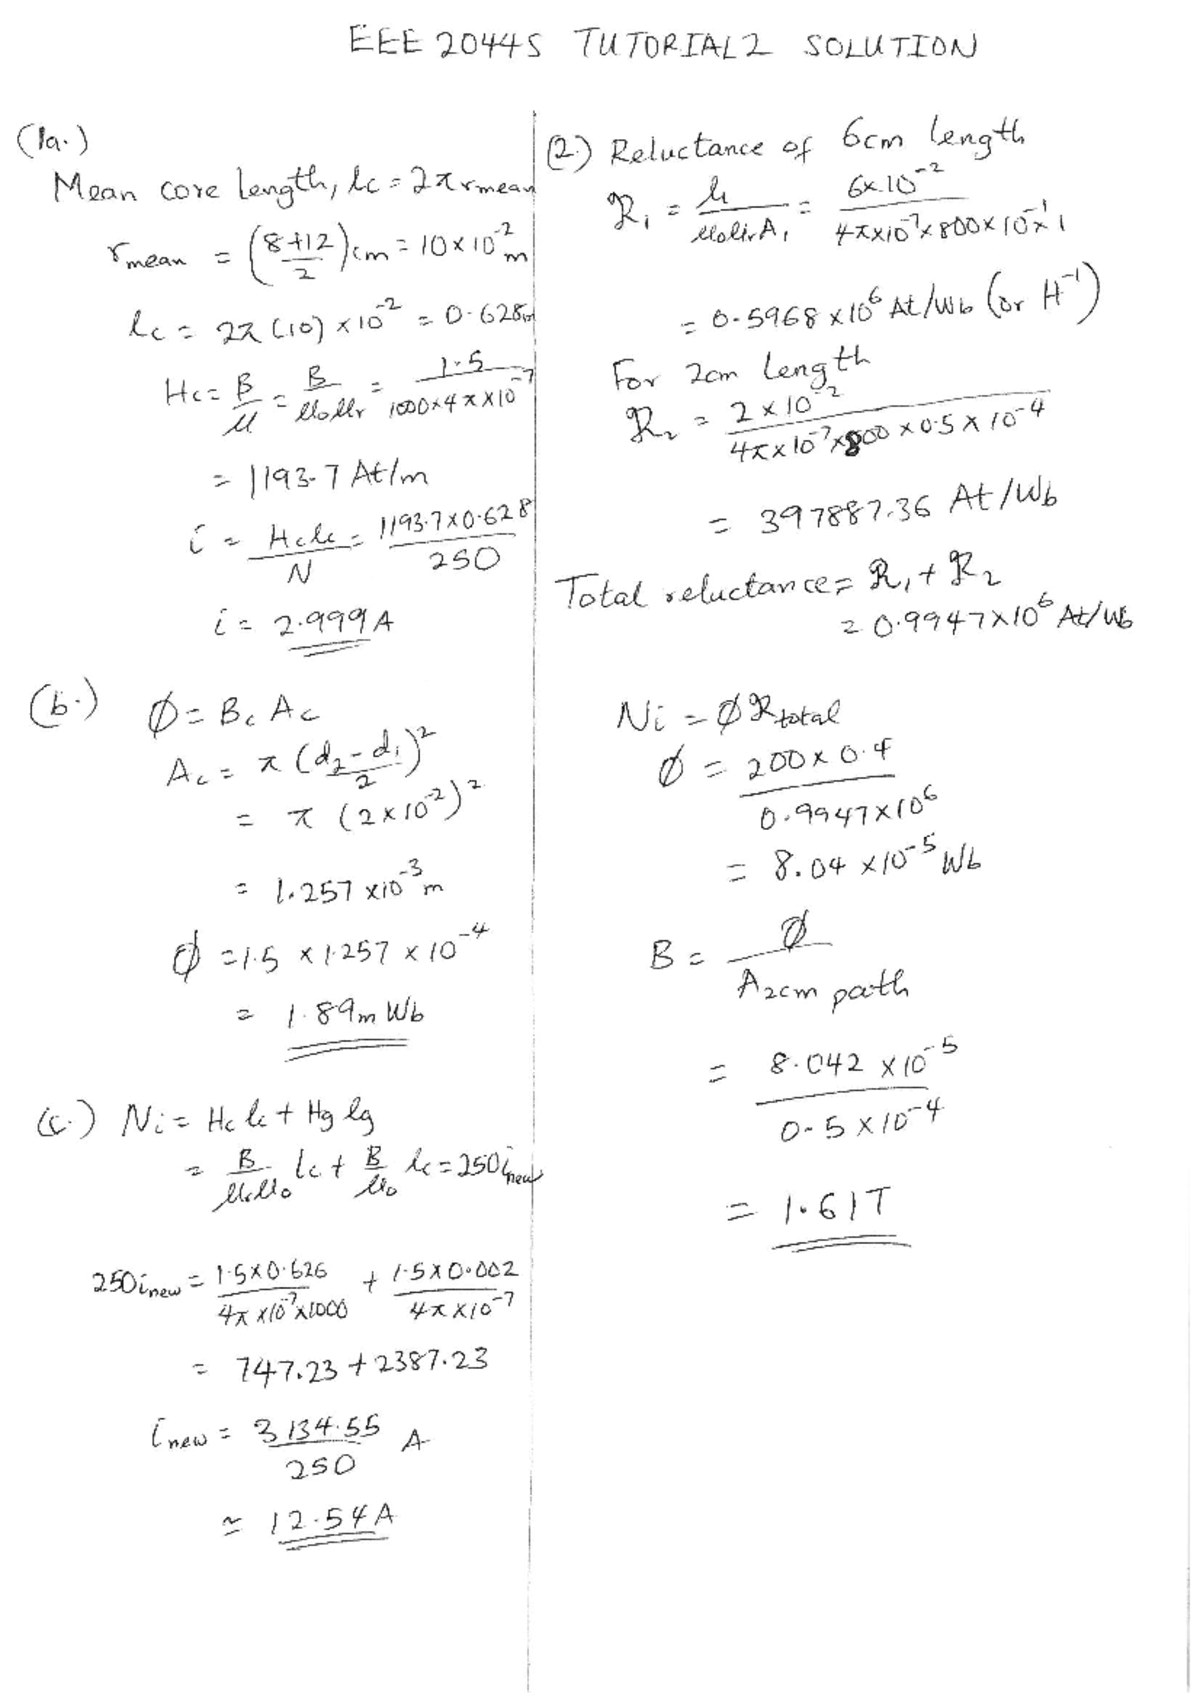 EEE 2044S TUTORIAL 2 SOLUTION
(1a.)
Mean core length, lc = 2π rmean
rmean = (8+12/2)cm = 10 x 10^-2 m
lc = 2π (10) x 10^-2 = 0.628m
Hc = B/μ = B/μ0μr = 1.5/1000x4πx10^-7
= 1193.7 At/m
i = Hclc/N = 1193.7x0.628/250
i = 2.999A
(b.) Ø = Bc Ac
Ac = π (d2-d1/2)^2
= π (2x10^-2)^2
= 1.257 x10^-3 m
Ø = 1.5 x 1.257 x 10^-4
= 1.89m Wb
(c.) Ni = Hc lc + Hg lg
= B/μrμ0 lc + B/μ0 lc = 250inew
250inew = 1.5x0.626/4πx10^-7x1000 + 1.5x0.002/4πx10^-7
= 747.23 + 2387.23
inew = 3134.55/250 A
≃ 12.54A
(2.) Reluctance of 6cm length
ℛ1 = l1/μ0μrA1 = 6x10^-2/4πx10^-7x800x10^-1x1
= 0.5968x10^6 At/Wb (or H^-1)
For 2cm length
ℛ2 = 2x10^-2/4πx10^-7x800x0.5x10^-4
= 397887.36 At/Wb
Total reluctance = ℛ1 + ℛ2
= 0.9947x10^6 At/Wb
Ni = Øℛtotal
Ø = 200x0.4/0.9947x10^6
= 8.04 x10^-5 Wb
B = Ø/A2cm path
= 8.042 x10^-5/0.5x10^-4
= 1.61T